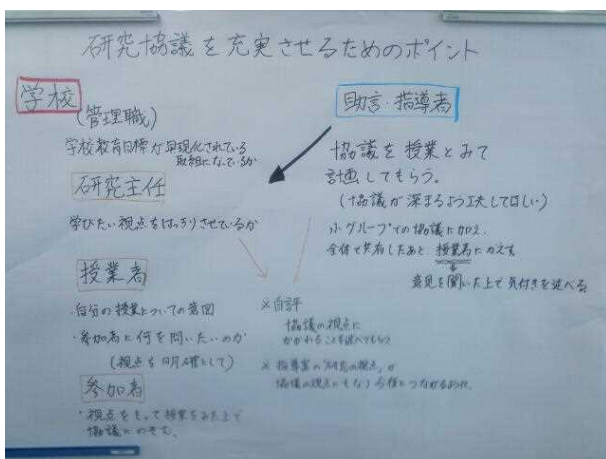 研究協議を充実させるためのポイント
学校
(管理職)
学校教育目標が具現化されている
取組になっているか
研究主任
学びたい視点をはっきりさせているか
授業者
・自分の授業についての意図
・参加者に何を問いたいのか
(視点を明確にして)
参加者
・視点をもって授業をみた上で
協議にのぞむ。
助言・指導者
協議を授業とみて
計画してもらう。
(協議が深まるよう工夫してほしい)
小グループでの協議に加え、
全体で共有したあと、授業者にかえす
意見を聞いた上で気付きを述べる
※自評
協議の視点に
かかわることを述べてもらう
※指導案の「研究の視点」が
協議の視点にもなり